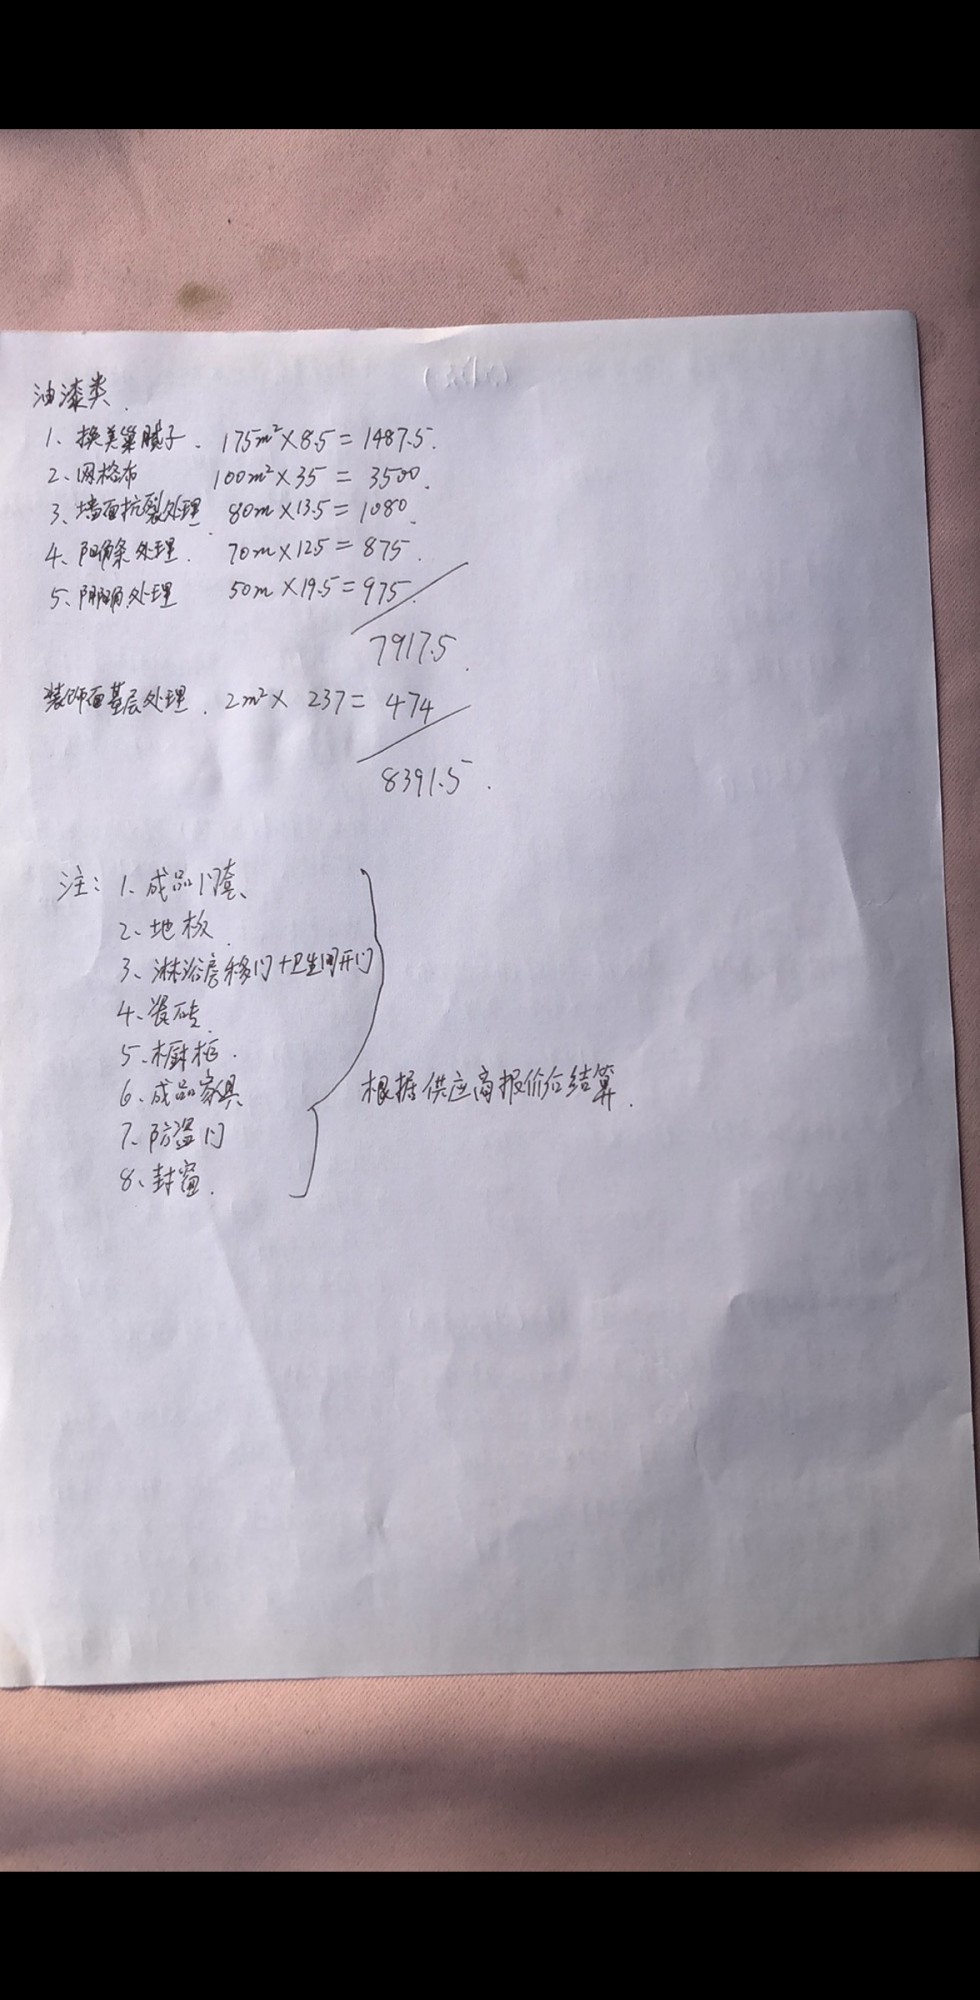 油漆类.
1、换美巢腻子. 175m²×8.5=1487.5.
2、网格布 100m²×35=3500.
3、墙面抗裂处理. 80m×13.5=1080.
4、阳角条处理. 70m×12.5=875.
5、阴角处理 50m×19.5=975.
7917.5.
装饰面基层处理. 2m²×237=474
8391.5.
注: 1、成品门套、
2、地板.
3、淋浴房移门+卫生间开门
4、瓷砖.
5、橱柜.
6、成品家具
根据供应商报价后结算.
7、防盗门
8、封窗.